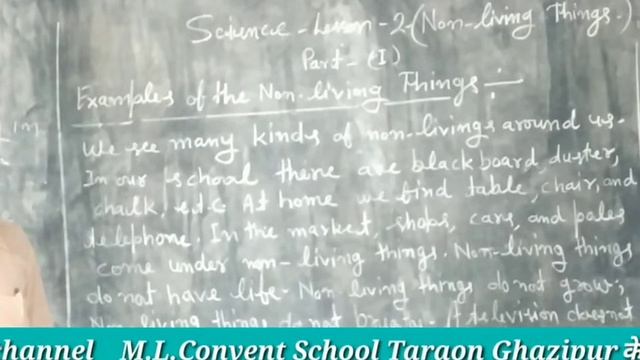 Science - Lesson - 2 - (Non-living Things.)
Part - (I)
Examples of the Non-living Things :-
We see many kinds of non-livings around us.
In our school there are blackboard, duster,
chalk, e.t.c. At home we find table, chair, and
telephone. In the market, shops, cars, and poles
come under non-living things. Non-living things
do not have life. Non-living things do not grow,
Non living things do not A television does not
channel M.L.Convent School Taraon Ghazipur